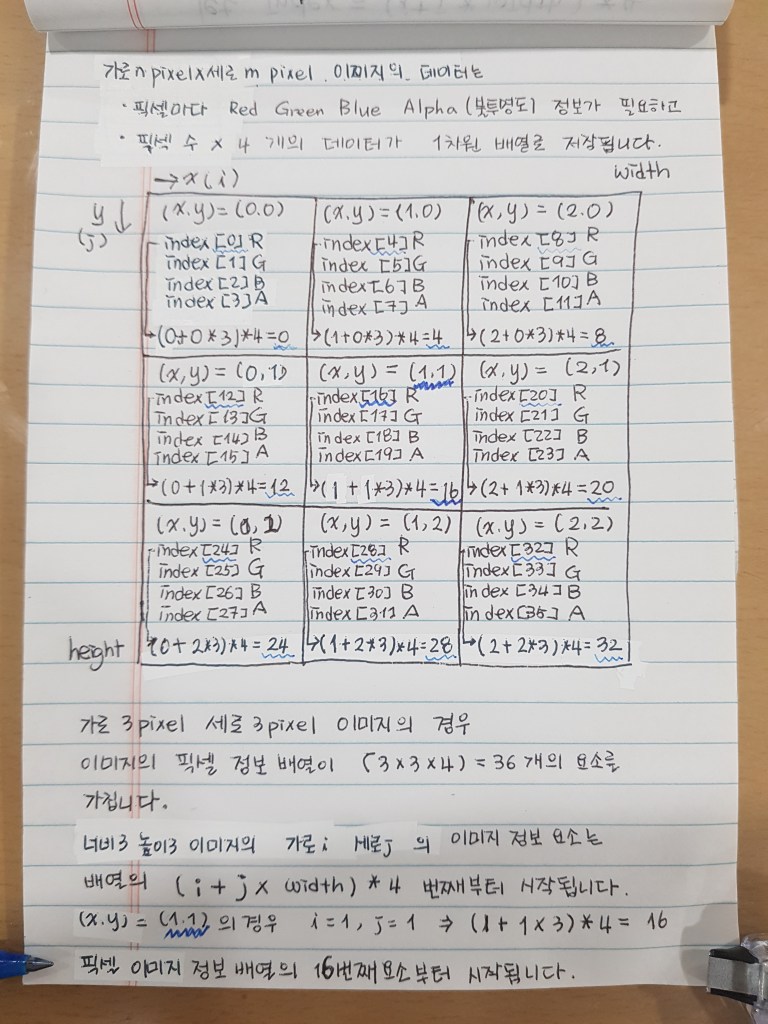 가로 n pixel x 세로 m pixel 이미지의 데이터는
· 픽셀마다 Red Green Blue Alpha (불투명도) 정보가 필요하고
· 픽셀 수 x 4 개의 데이터가 1차원 배열로 저장됩니다.
→ x(i) width
y ↓
(j)
(x.y)=(0.0) (x.y)=(1.0) (x,y)=(2.0)
index [0] R index[4] R index [8] R
index [1] G index [5]G index [9] G
index [2] B index[6]B index [10] B
index [3] A index [7] A index [11] A
→(0+0*3)*4=0 →(1+0*3)*4=4 →(2+0*3)*4=8
(x,y)=(0,1) (x,y)=(1,1) (x,y)=(2,1)
index [12] R index[16] R index [20] R
index [13]G index [17] G index [21] G
index [14] B index [18] B index [22] B
index [15] A index [19] A index [23] A
→(0+1*3)*4=12 →(1+1*3)*4=16 →(2+1*3)*4=20
(x.y)=(0,2) (x,y)=(1,2) (x.y)=(2,2)
index[24] R index[28] R index[32] R
index [25] G index [29] G index [33] G
index [26] B index [30] B index [34] B
index [27] A index [31] A index [35] A
height →(0+2*3)*4=24 →(1+2*3)*4=28 →(2+2*3)*4=32
가로 3 pixel 세로 3 pixel 이미지의 경우
이미지의 픽셀 정보 배열이 (3x3x4) = 36 개의 요소를
가집니다.
너비3 높이3 이미지의 가로 i 세로 j 의 이미지 정보 요소는
배열의 (i + j x width) * 4 번째부터 시작됩니다.
(x.y) = (1.1) 의 경우 i=1, j=1 ⇒ (1+1x3)*4 = 16
픽셀 이미지 정보 배열의 16번째 요소부터 시작됩니다.